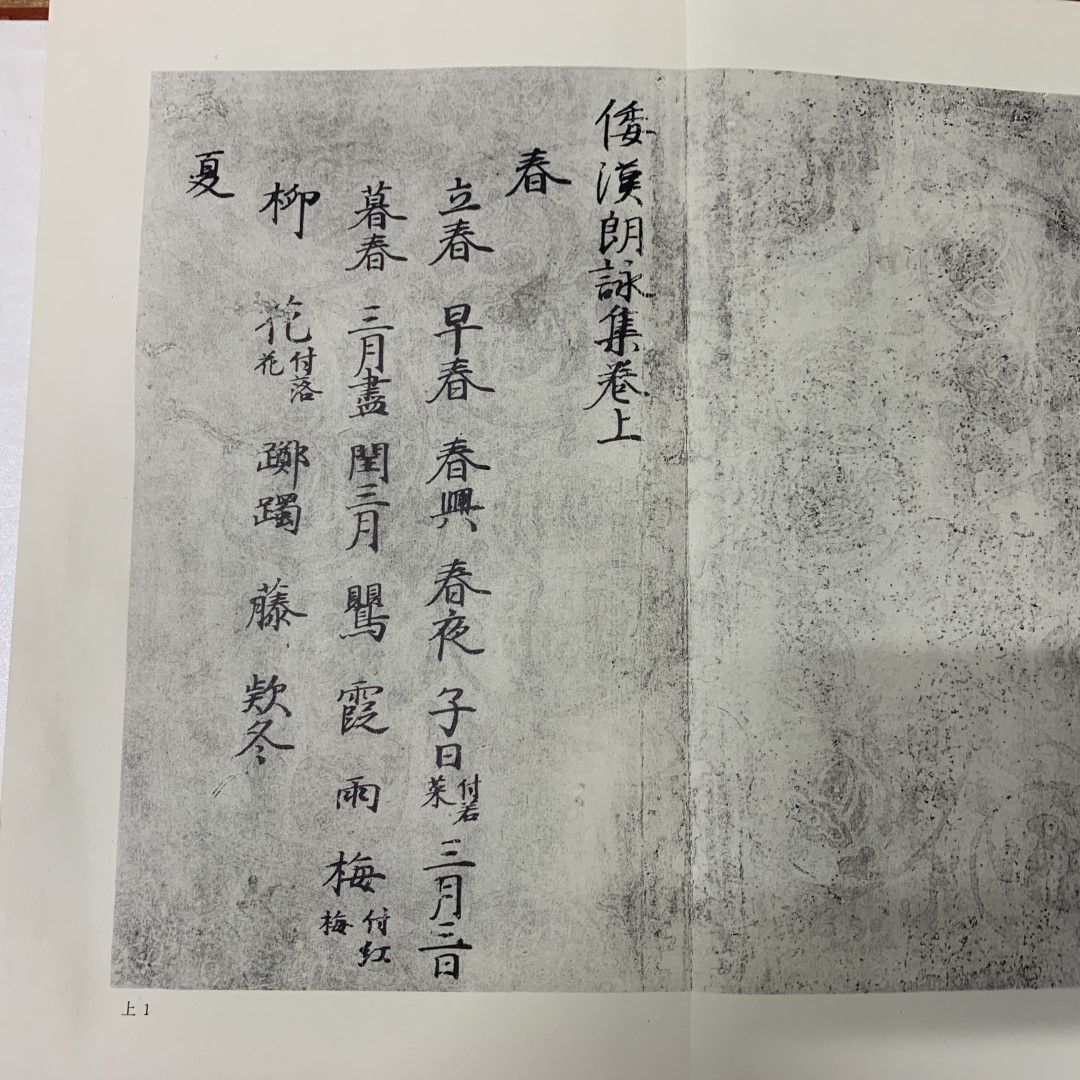 倭漢朗詠集巻上
春
立春 早春 春興 春夜 子日付若菜 三月三日
暮春 三月盡 閏三月 鸎 霞 雨 梅付紅梅
柳 花付落花 躑躅 藤 欵冬
夏
上 1